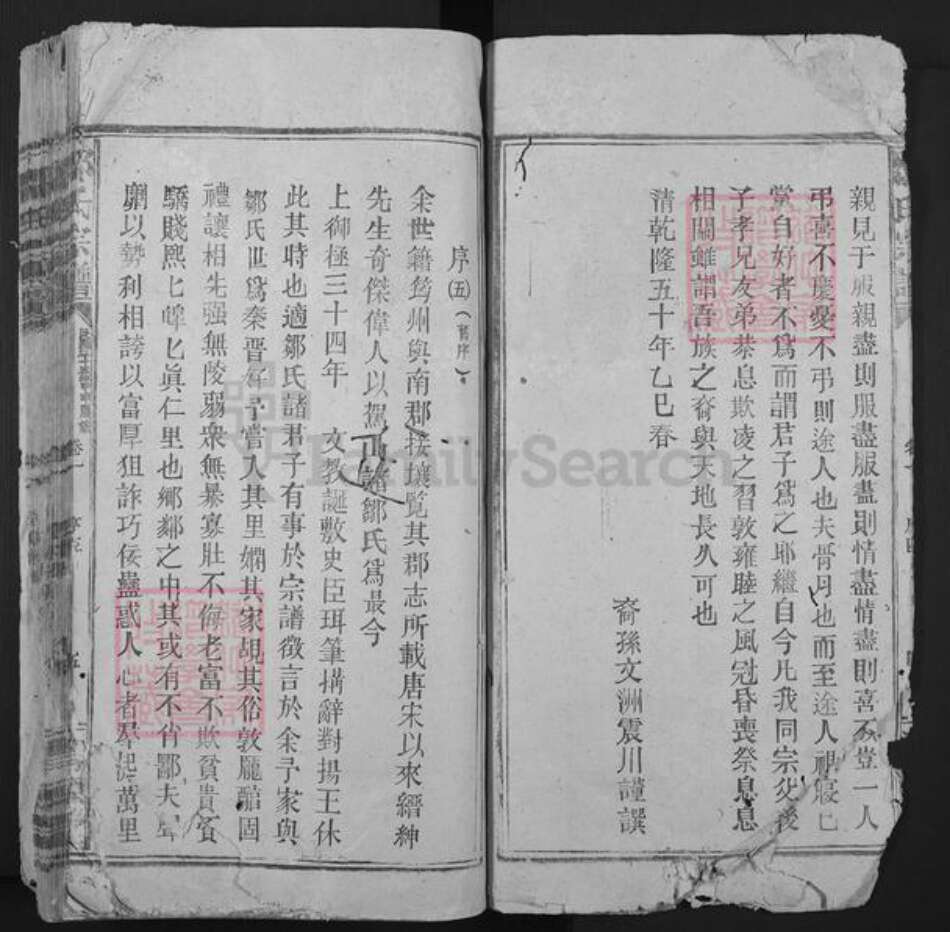 親見于服親盡則服盡服盡則情盡情盡則喜不登一人
弔喜不慶憂不弔則途人也夫骨肉也而至途人視寔已
黨自好者不爲而謂君子爲之耶繼自今凡我同宗父後
子孝兄友弟恭息欺凌之習敦雍睦之風冠昏喪祭息息
相關雖謂吾族之裔與天地長久可也
清乾隆五十年乙巳春
裔孫文洲震川謹譔
序(五)(舊序)
余世籍筠州與南郡接壤覧其郡志所載唐宋以來縉紳
先生奇傑偉人以駕 西 諸鄒氏爲最今
上御極三十四年 文教誕敷史臣珥筆搆辭對揚王休
此其時也適鄒氏諸君子有事於宗譜徵言於余予家與
鄒氏世爲秦晋好予嘗入其里嫻其家覘其俗敦龎醕固
禮讓相先强無陵弱衆無暴寡壯不侮老富不欺貧貴不
驕賤熙匕皥匕眞仁里也鄉鄰之中其或有不肖鄙夫
以勢利相誇以富厚狙詐巧佞蠱惑人心者 萬里
卷一
五
FamilySearch